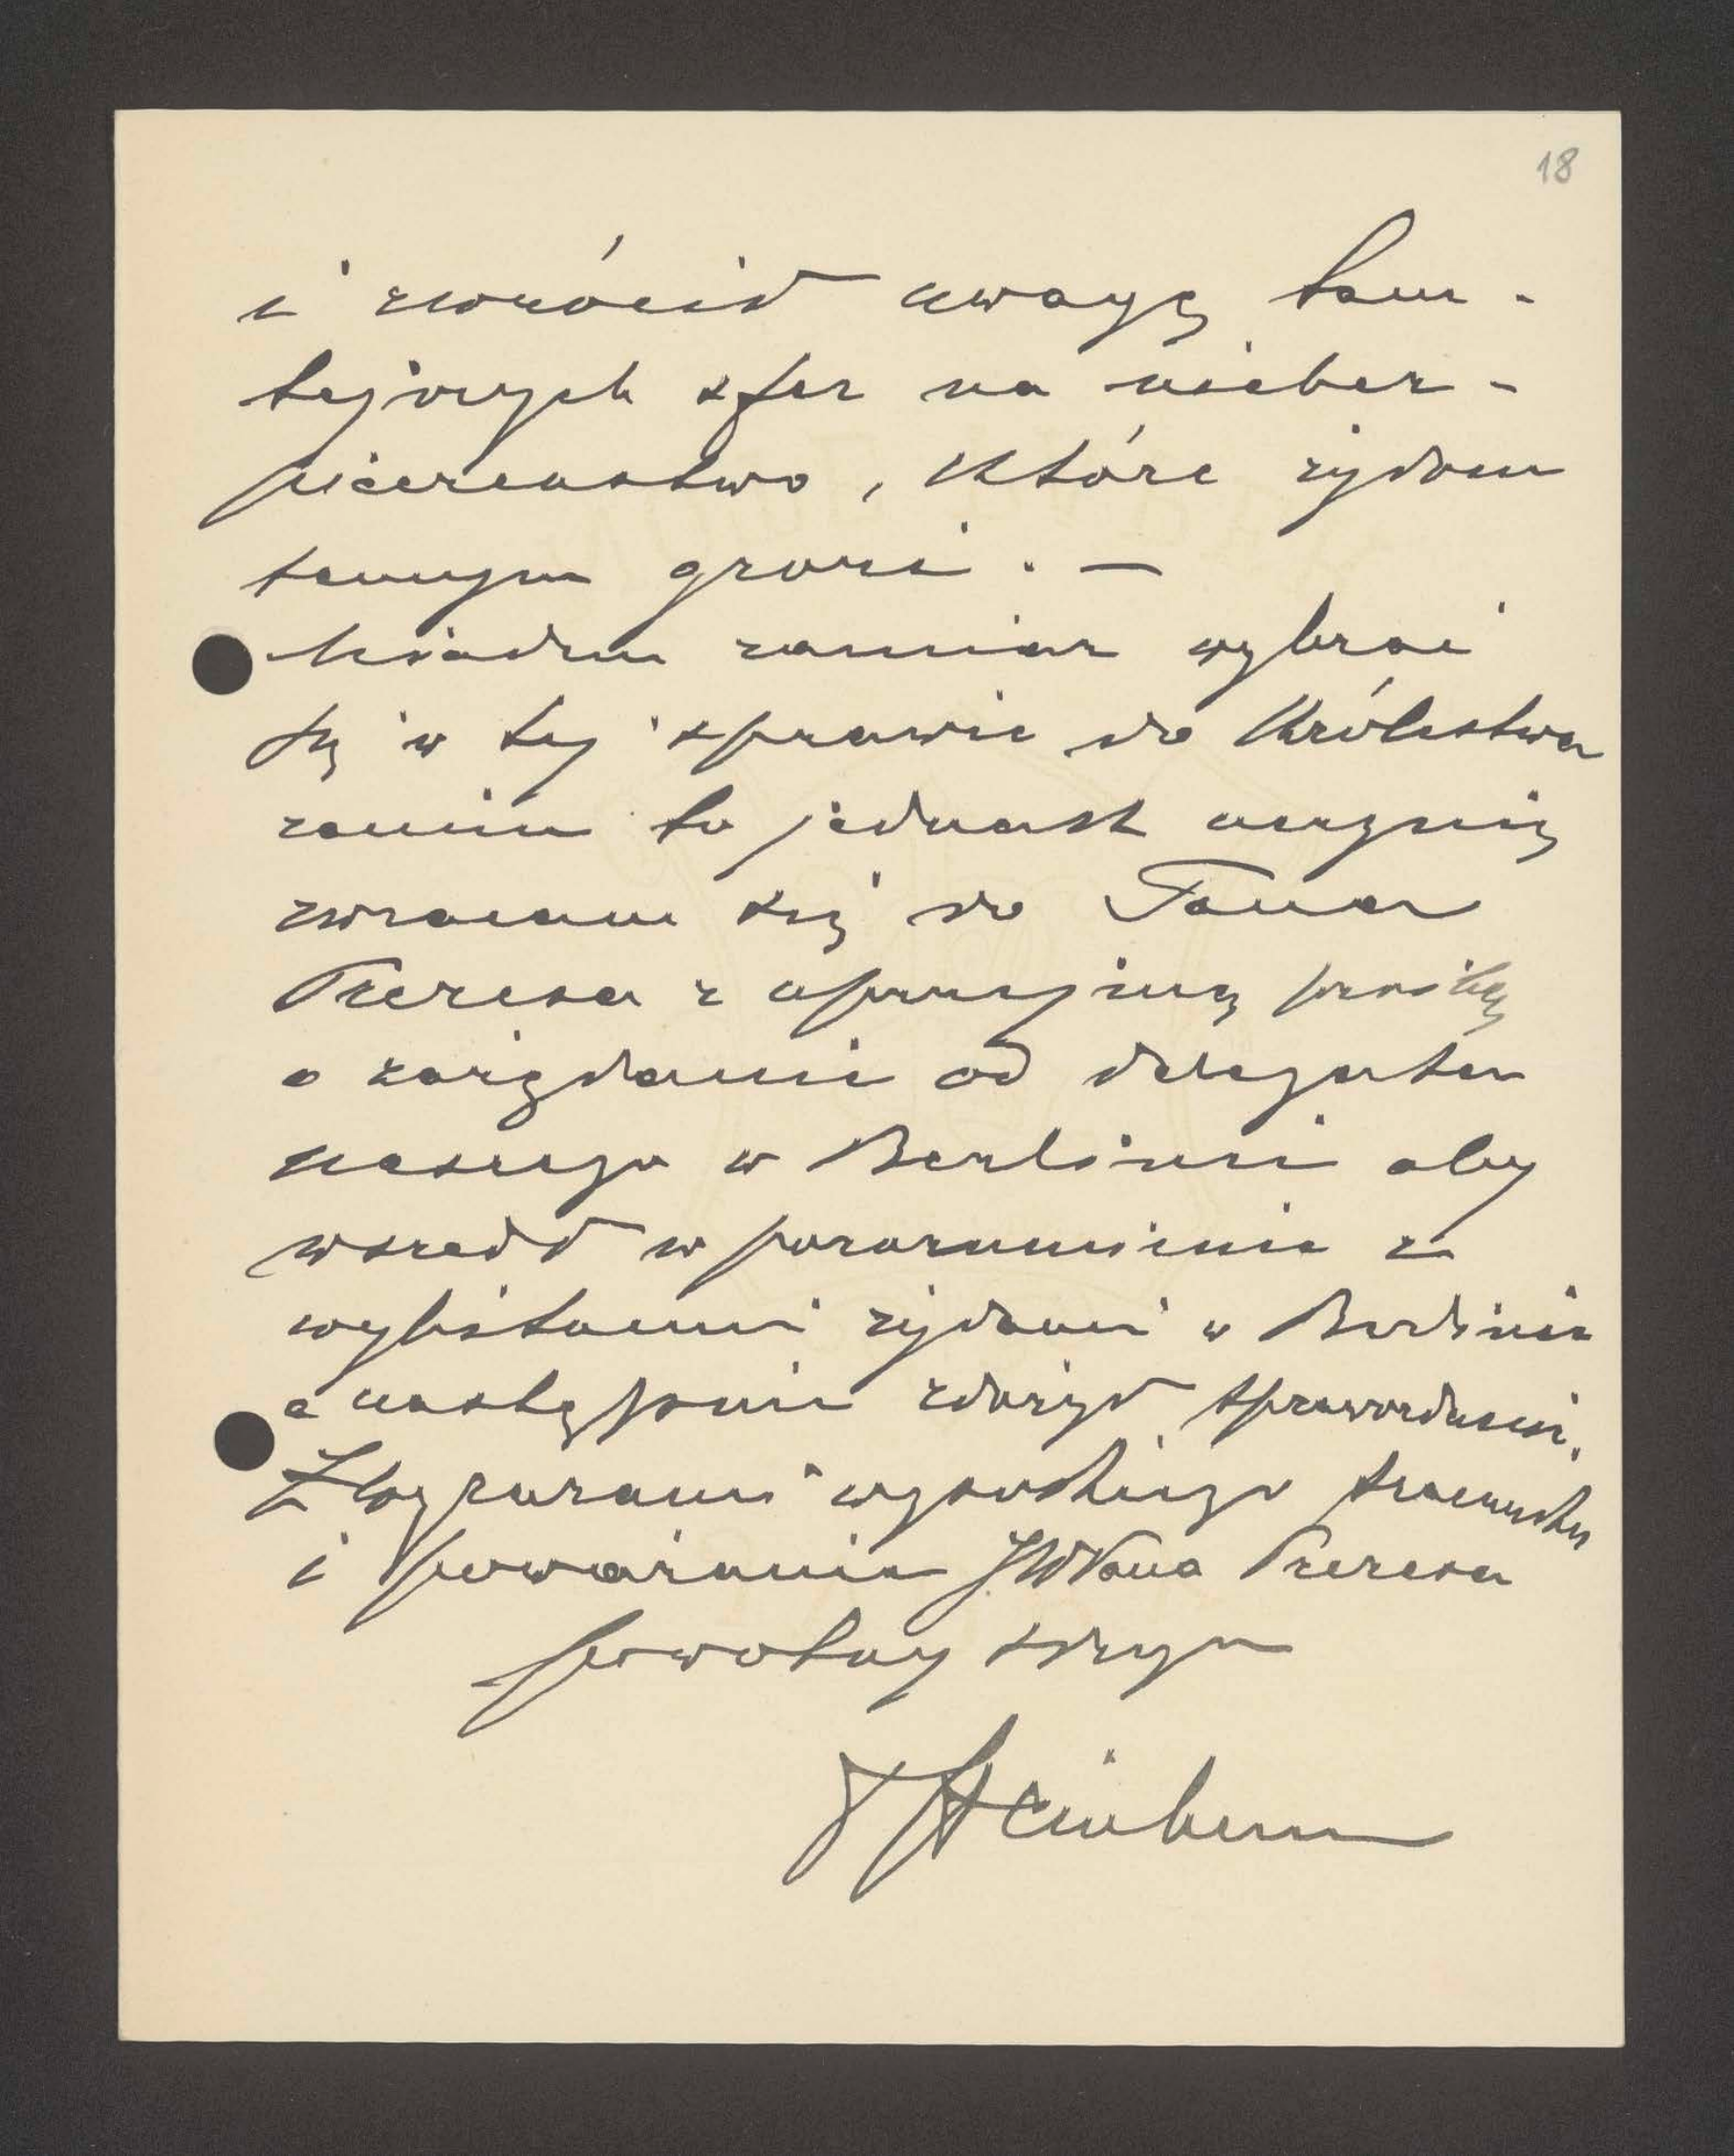 18
i zwrócił uwagę tam-
tejszych sfer na niebez-
pieczeństwo, które żydom
samym grozi. —
Miałem zamiar wybrać
się w tej sprawie do Królestwa
zanim to jednak uczynię
zwracam się do Pana
Prezesa z uprzejmą prośbą
o zażądanie od delegata
naszego w Berlinie aby
wszedł w porozumienie z
wybitnemi żydami w Berlinie
a następnie złożył sprawozdanie.
Z wyrazami wysokiego szacunku
i poważania JWPana Prezesa
powolny sługa